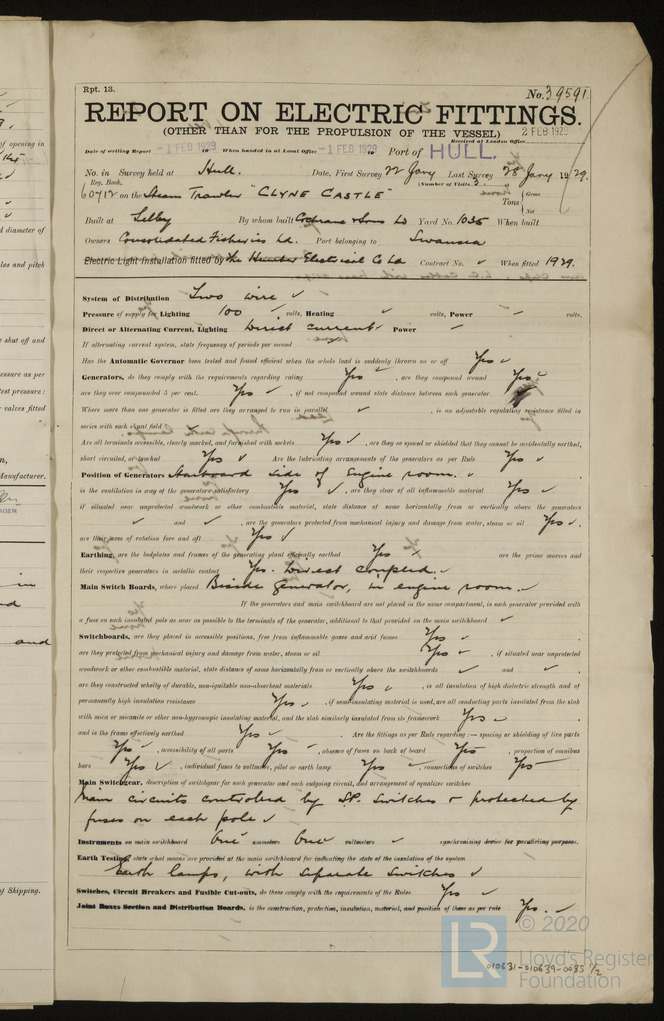 Rpt. 13.
No. 39591
REPORT ON ELECTRIC FITTINGS.
(OTHER THAN FOR THE PROPULSION OF THE VESSEL)
Received at London Office 2 FEB 1929
Date of writing Report -1 FEB 1929 19 When handed in at Local Office -1 FEB 1929 19 Port of HULL.
No. in Survey held at Hull. Date, First Survey 22 Jany Last Survey 28 Jany 1929.
Reg. Book. (Number of Visits 3
60712 on the Steam Trawler "CLYNE CASTLE" Tons { Gross
Net
Built at Selby By whom built Cochrane & Sons Ld Yard No. 1035 When built
Owners Consolidated Fisheries Ld. Port belonging to Swansea
Electric Light Installation fitted by The Humber Electrical Co Ld Contract No. ✓ When fitted 1929.
System of Distribution Two wire ✓
Pressure of supply for Lighting 100 ✓ volts, Heating ✓ volts, Power ✓ volts.
Direct or Alternating Current, Lighting Direct current ✓ Power ✓
If alternating current, state frequency of periods per second
Has the Automatic Governor been tested and found efficient when the whole load is suddenly thrown on or off Yes ✓
Generators, do they comply with the requirements regarding rating Yes ✓ , are they compound wound Yes ✓
are they over compounded 5 per cent. Yes ✓ , if not compound wound state distance between each generator
Where more than one generator is fitted are they arranged to run in parallel ✓ , is an adjustable regulating resistance fitted in
series with each shunt field ✓
Are all terminals accessible, clearly marked, and furnished with sockets Yes ✓ , are they so spaced or shielded that they cannot be accidentally earthed,
short circuited, or touched Yes ✓ Are the lubricating arrangements of the generators as per Rule Yes ✓
Position of Generators Starboard side of Engine room. ✓
is the ventilation in way of the generators satisfactory Yes ✓ , are they clear of all inflammable material Yes ✓
if situated near unprotected woodwork or other combustible material, state distance of same horizontally from or vertically above the generators
✓ and ✓ , are the generators protected from mechanical injury and damage from water, steam or oil Yes ✓
are their axes of rotation fore and aft Yes ✓
Earthing, are the bedplates and frames of the generating plant efficiently earthed Yes are the prime movers and
their respective generators in metallic contact Yes. Direct coupled. ✓
Main Switch Boards, where placed Beside generator, in engine room. ✓
If the generators and main switchboard are not placed in the same compartment, is each generator provided with
a fuse on each insulated pole as near as possible to the terminals of the generator, additional to that provided on the main switchboard ✓
Switchboards, are they placed in accessible positions, free from inflammable gases and acid fumes Yes ✓
are they protected from mechanical injury and damage from water, steam or oil Yes ✓ , if situated near unprotected
woodwork or other combustible material, state distance of same horizontally from or vertically above the switchboards ✓ and ✓
are they constructed wholly of durable, non-ignitable non-absorbent materials Yes ✓ , is all insulation of high dielectric strength and of
permanently high insulation resistance Yes ✓ , if semi-insulating material is used, are all conducting parts insulated from the slab
with mica or micanite or other non-hygroscopic insulating material, and the slab similarly insulated from its framework Yes ✓
and is the frame effectively earthed Yes ✓ . Are the fittings as per Rule regarding :— spacing or shielding of live parts
Yes ✓ , accessibility of all parts Yes ✓ , absence of fuses on back of board Yes ✓ , proportion of omnibus
bars Yes ✓ , individual fuses to voltmeter, pilot or earth lamp Yes ✓ , connections of switches Yes ✓
Main Switchgear, description of switchgear for each generator and each outgoing circuit, and arrangement of equalizer switches
Main circuits controlled by S.P. Switches & protected by
fuses on each pole ✓
Instruments on main switchboard One ammeters One voltmeters ✓ synchronising device for paralleling purposes.
Earth Testing, state what means are provided at the main switchboard for indicating the state of the insulation of the system
Earth lamps, with separate switches ✓
Switches, Circuit Breakers and Fusible Cut-outs, do these comply with the requirements of the Rules Yes ✓
Joint Boxes Section and Distribution Boards, is the construction, protection, insulation, material, and position of these as per rule Yes. ✓
© 2020
LR
Lloyd's Register
Foundation
010631-010639-0085 1/2
of opening in
diameter of
les and pitch
shut off and
essure as per
test pressure :
valves fitted
Manufacturer.
AGER
in
and
of Shipping.